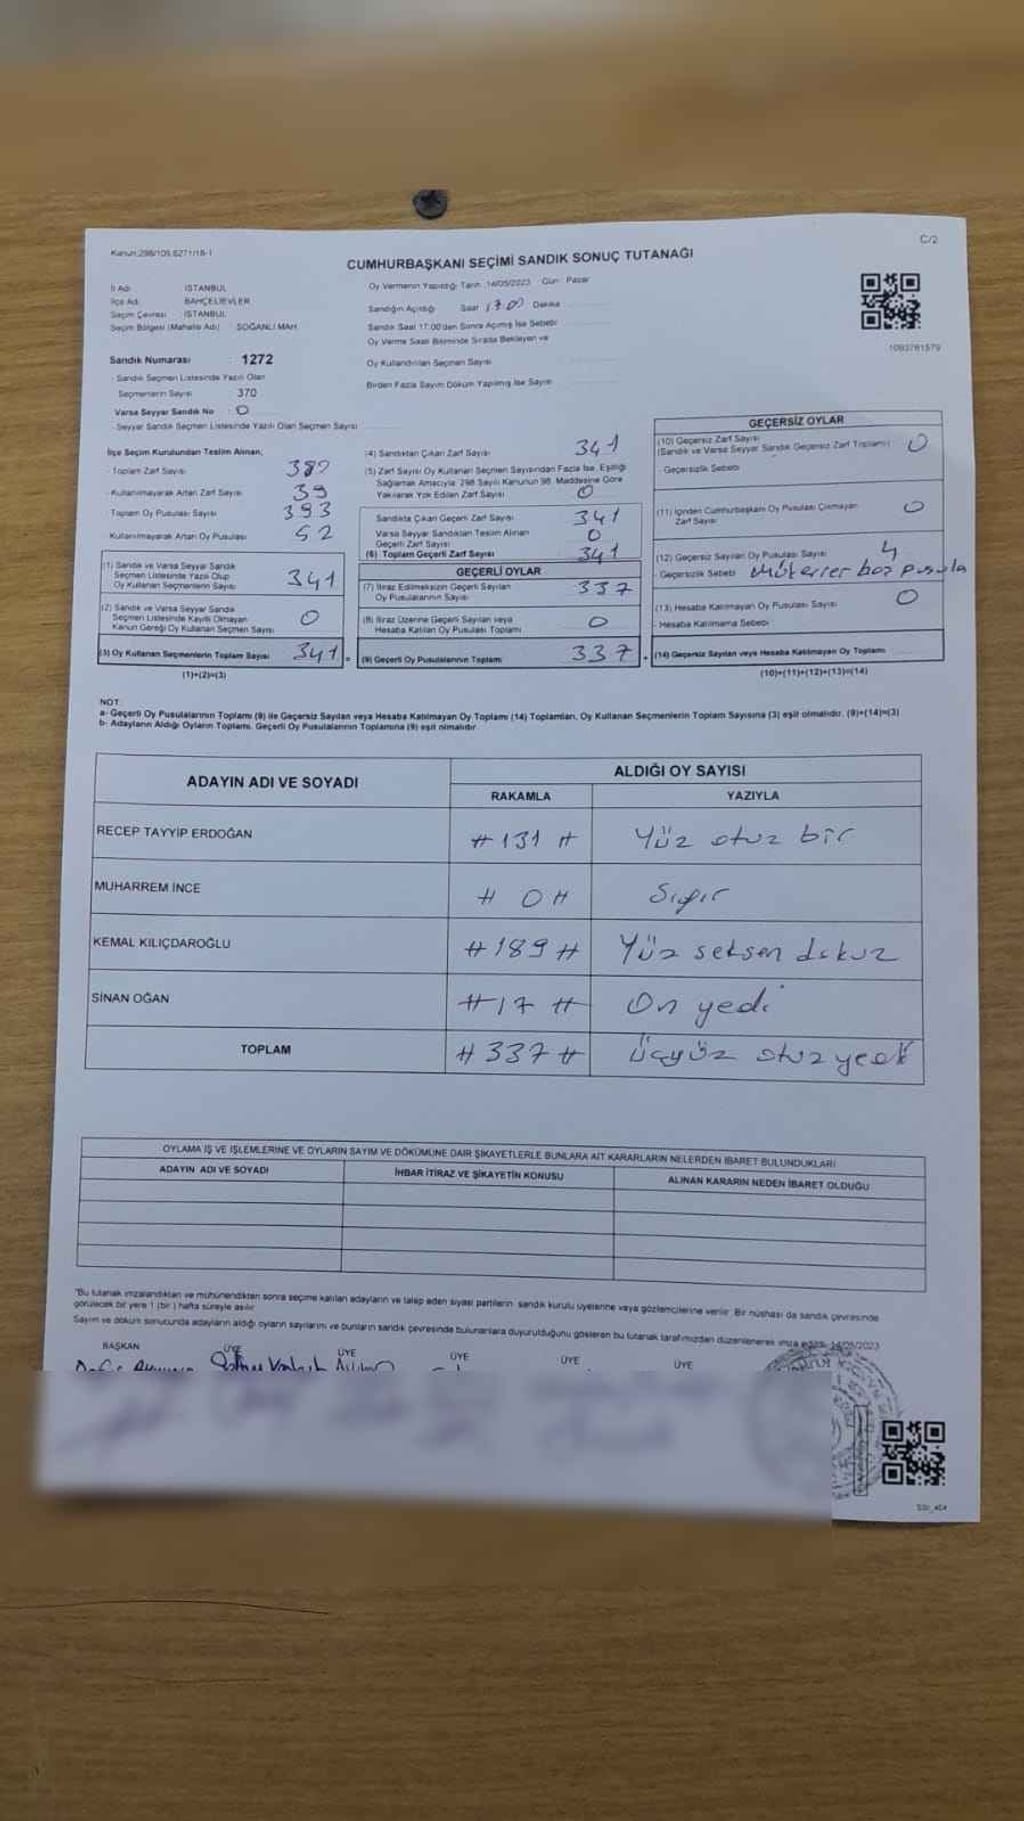 Kanun:298/105,6271/18-1
C/2
CUMHURBAŞKANI SEÇİMİ SANDIK SONUÇ TUTANAĞI
İl Adı : İSTANBUL
İlçe Adı : BAHÇELİEVLER
Seçim Çevresi : İSTANBUL
Seçim Bölgesi (Mahalle Adı) : SOĞANLI MAH.
Oy Vermenin Yapıldığı Tarih :14/05/2023 Gün : Pazar
Sandığın Açıldığı Saat 17:00 Dakika
Sandık Saat 17:00'den Sonra Açılmış İse Sebebi
Oy Verme Saati Bitiminde Sırada Bekleyen ve
Oy Kullandırılan Seçmen Sayısı
Birden Fazla Sayım Döküm Yapılmış İse Sayısı
1093761579
Sandık Numarası : 1272
- Sandık Seçmen Listesinde Yazılı Olan
Seçmenlerin Sayısı : 370
Varsa Seyyar Sandık No : 0
- Seyyar Sandık Seçmen Listesinde Yazılı Olan Seçmen Sayısı
İlçe Seçim Kurulundan Teslim Alınan;
- Toplam Zarf Sayısı 380
- Kullanılmayarak Artan Zarf Sayısı 39
- Toplam Oy Pusulası Sayısı 393
- Kullanılmayarak Artan Oy Pusulası 52
(1) Sandık ve Varsa Seyyar Sandık
Seçmen Listesinde Yazılı Olup
Oy Kullanan Seçmenlerin Sayısı 341
(2) Sandık ve Varsa Seyyar Sandık
Seçmen Listesinde Kayıtlı Olmayan
Kanun Gereği Oy Kullanan Seçmen Sayısı 0
(3) Oy Kullanan Seçmenlerin Toplam Sayısı 341
(1)+(2)=(3)
(4) Sandıktan Çıkan Zarf Sayısı 341
(5) Zarf Sayısı Oy Kullanan Seçmen Sayısından Fazla İse, Eşitliği
Sağlamak Amacıyla; 298 Sayılı Kanunun 98. Maddesine Göre
Yakılarak Yok Edilen Zarf Sayısı 0
Sandıkta Çıkan Geçerli Zarf Sayısı 341
Varsa Seyyar Sandıktan Teslim Alınan
Geçerli Zarf Sayısı 0
(6) Toplam Geçerli Zarf Sayısı 341
GEÇERLİ OYLAR
(7) İtiraz Edilmeksizin Geçerli Sayılan
Oy Pusulalarının Sayısı 337
(8) İtiraz Üzerine Geçerli Sayılan veya
Hesaba Katılan Oy Pusulası Toplamı 0
(9) Geçerli Oy Pusulalarının Toplamı 337
GEÇERSİZ OYLAR
(10) Geçersiz Zarf Sayısı
(Sandık ve Varsa Seyyar Sandık Geçersiz Zarf Toplamı) 0
- Geçersizlik Sebebi
(11) İçinden Cumhurbaşkanı Oy Pusulası Çıkmayan
Zarf Sayısı 0
(12) Geçersiz Sayılan Oy Pusulası Sayısı 4
- Geçersizlik Sebebi mükerrer boş pusula
(13) Hesaba Katılmayan Oy Pusulası Sayısı 0
- Hesaba Katılmama Sebebi
(14) Geçersiz Sayılan veya Hesaba Katılmayan Oy Toplamı
(10)+(11)+(12)+(13)=(14)
NOT
a- Geçerli Oy Pusulalarının Toplamı (9) ile Geçersiz Sayılan veya Hesaba Katılmayan Oy Toplamı (14) Toplamları, Oy Kullanan Seçmenlerin Toplam Sayısına (3) eşit olmalıdır. (9)+(14)=(3)
b- Adayların Aldığı Oyların Toplamı, Geçerli Oy Pusulalarının Toplamına (9) eşit olmalıdır
ADAYIN ADI VE SOYADI
ALDIĞI OY SAYISI
RAKAMLA YAZIYLA
RECEP TAYYİP ERDOĞAN # 131 # Yüz otuz bir
MUHARREM İNCE # 0 # Sıfır
KEMAL KILIÇDAROĞLU # 189 # Yüz seksen dokuz
SİNAN OĞAN # 17 # On yedi
TOPLAM # 337 # Üçyüz otuz yedi
OYLAMA İŞ VE İŞLEMLERİNE VE OYLARIN SAYIM VE DÖKÜMÜNE DAİR ŞİKAYETLERLE BUNLARA AİT KARARLARIN NELERDEN İBARET BULUNDUKLARI
ADAYIN ADI VE SOYADI İHBAR İTİRAZ VE ŞİKAYETİN KONUSU ALINAN KARARIN NEDEN İBARET OLDUĞU
"Bu tutanak imzalandıktan ve mühürlendikten sonra seçime katılan adayların ve talep eden siyasi partilerin sandık kurulu üyelerine veya gözlemcilerine verilir. Bir nüshası da sandık çevresinde
görülecek bir yere 1 (bir) hafta süreyle asılır
Sayım ve döküm sonucunda adayların aldığı oyların sayılarını ve bunların sandık çevresinde bulunanlara duyurulduğunu gösteren bu tutanak tarafımızdan düzenlenerek imza edildi. 14/05/2023
BAŞKAN ÜYE ÜYE ÜYE ÜYE ÜYE